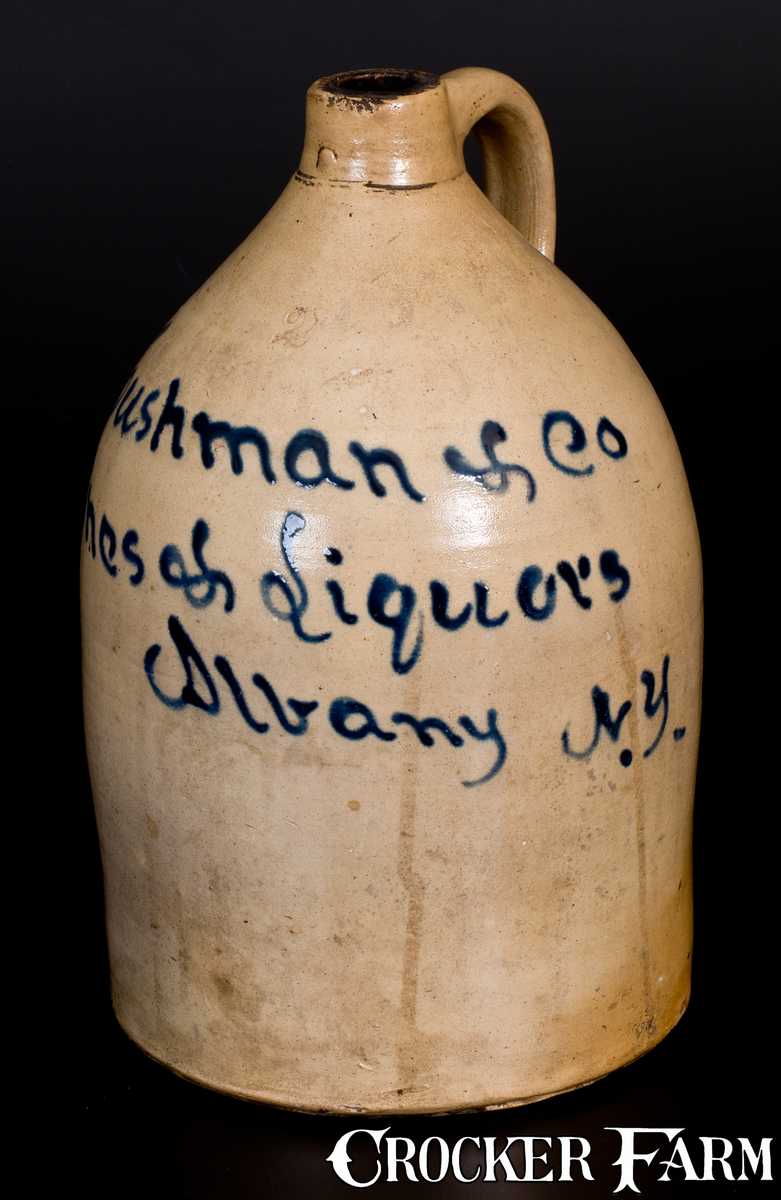 ushman & Co
nes & Liquors
Albany N.Y.
CROCKER FARM